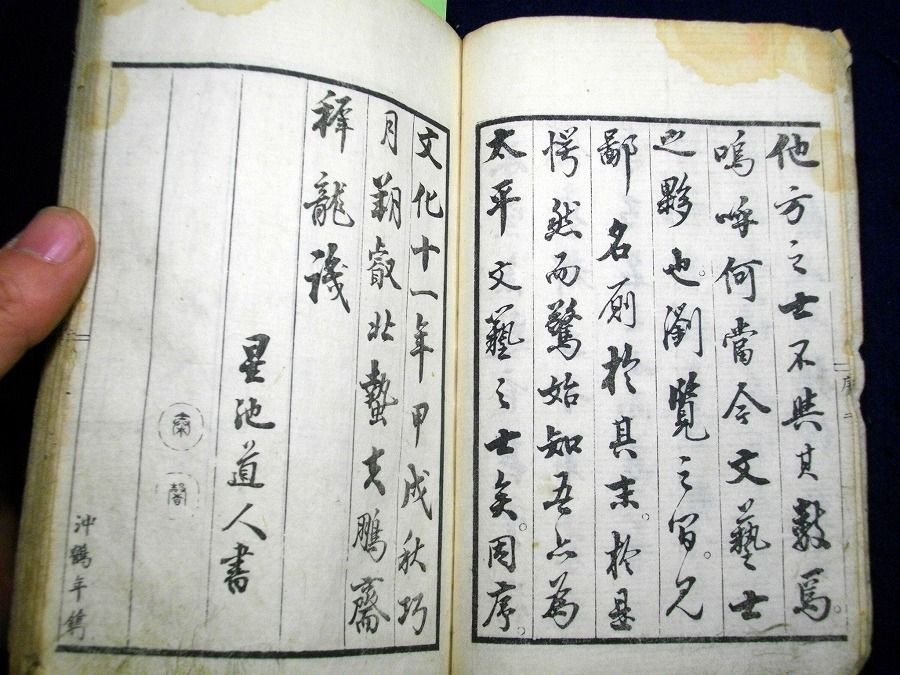 他方之士不與其數焉。
嗚呼何當今文藝士
之夥也。瀏覽之間。見
鄙名廁於其末。於是
愕然而驚始知吾亦為
太平文藝之士矣。因序。
文化十一年甲戌秋巧
月朔叡北蟄夫鵬齋
穉龍識
星池道人書
序二
沖鶴年鐫